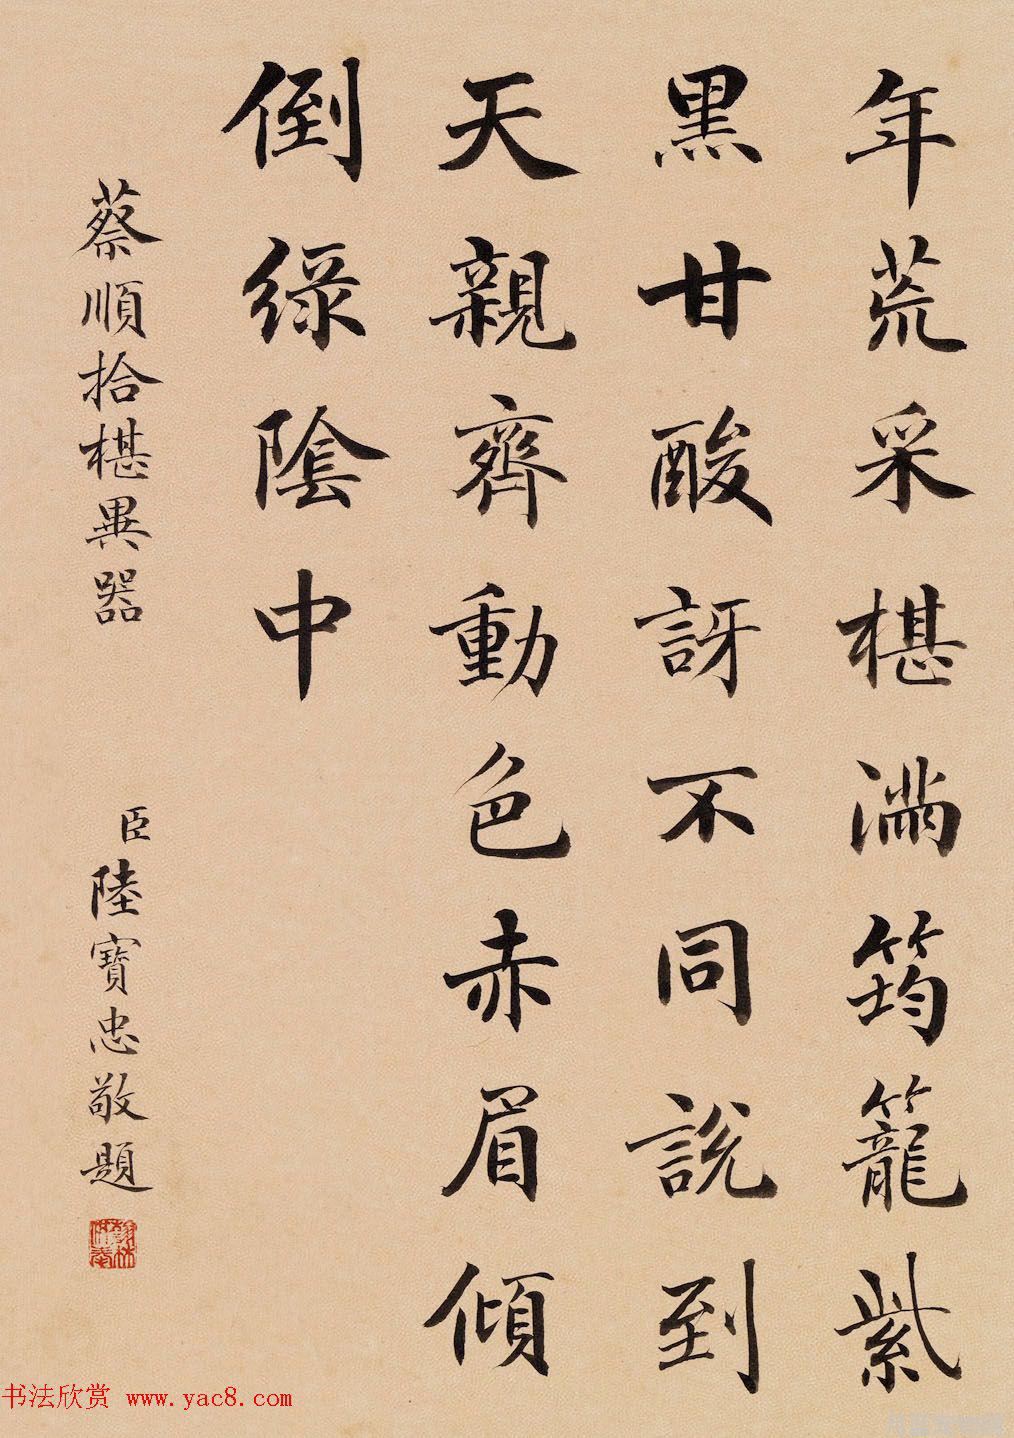 年荒采椹滿筠籠紫
黑甘酸訝不同說到
天親齊動色赤眉傾
倒綠陰中
蔡順拾椹異器
臣陸寶忠敬題
书法欣赏 www.yac8.com